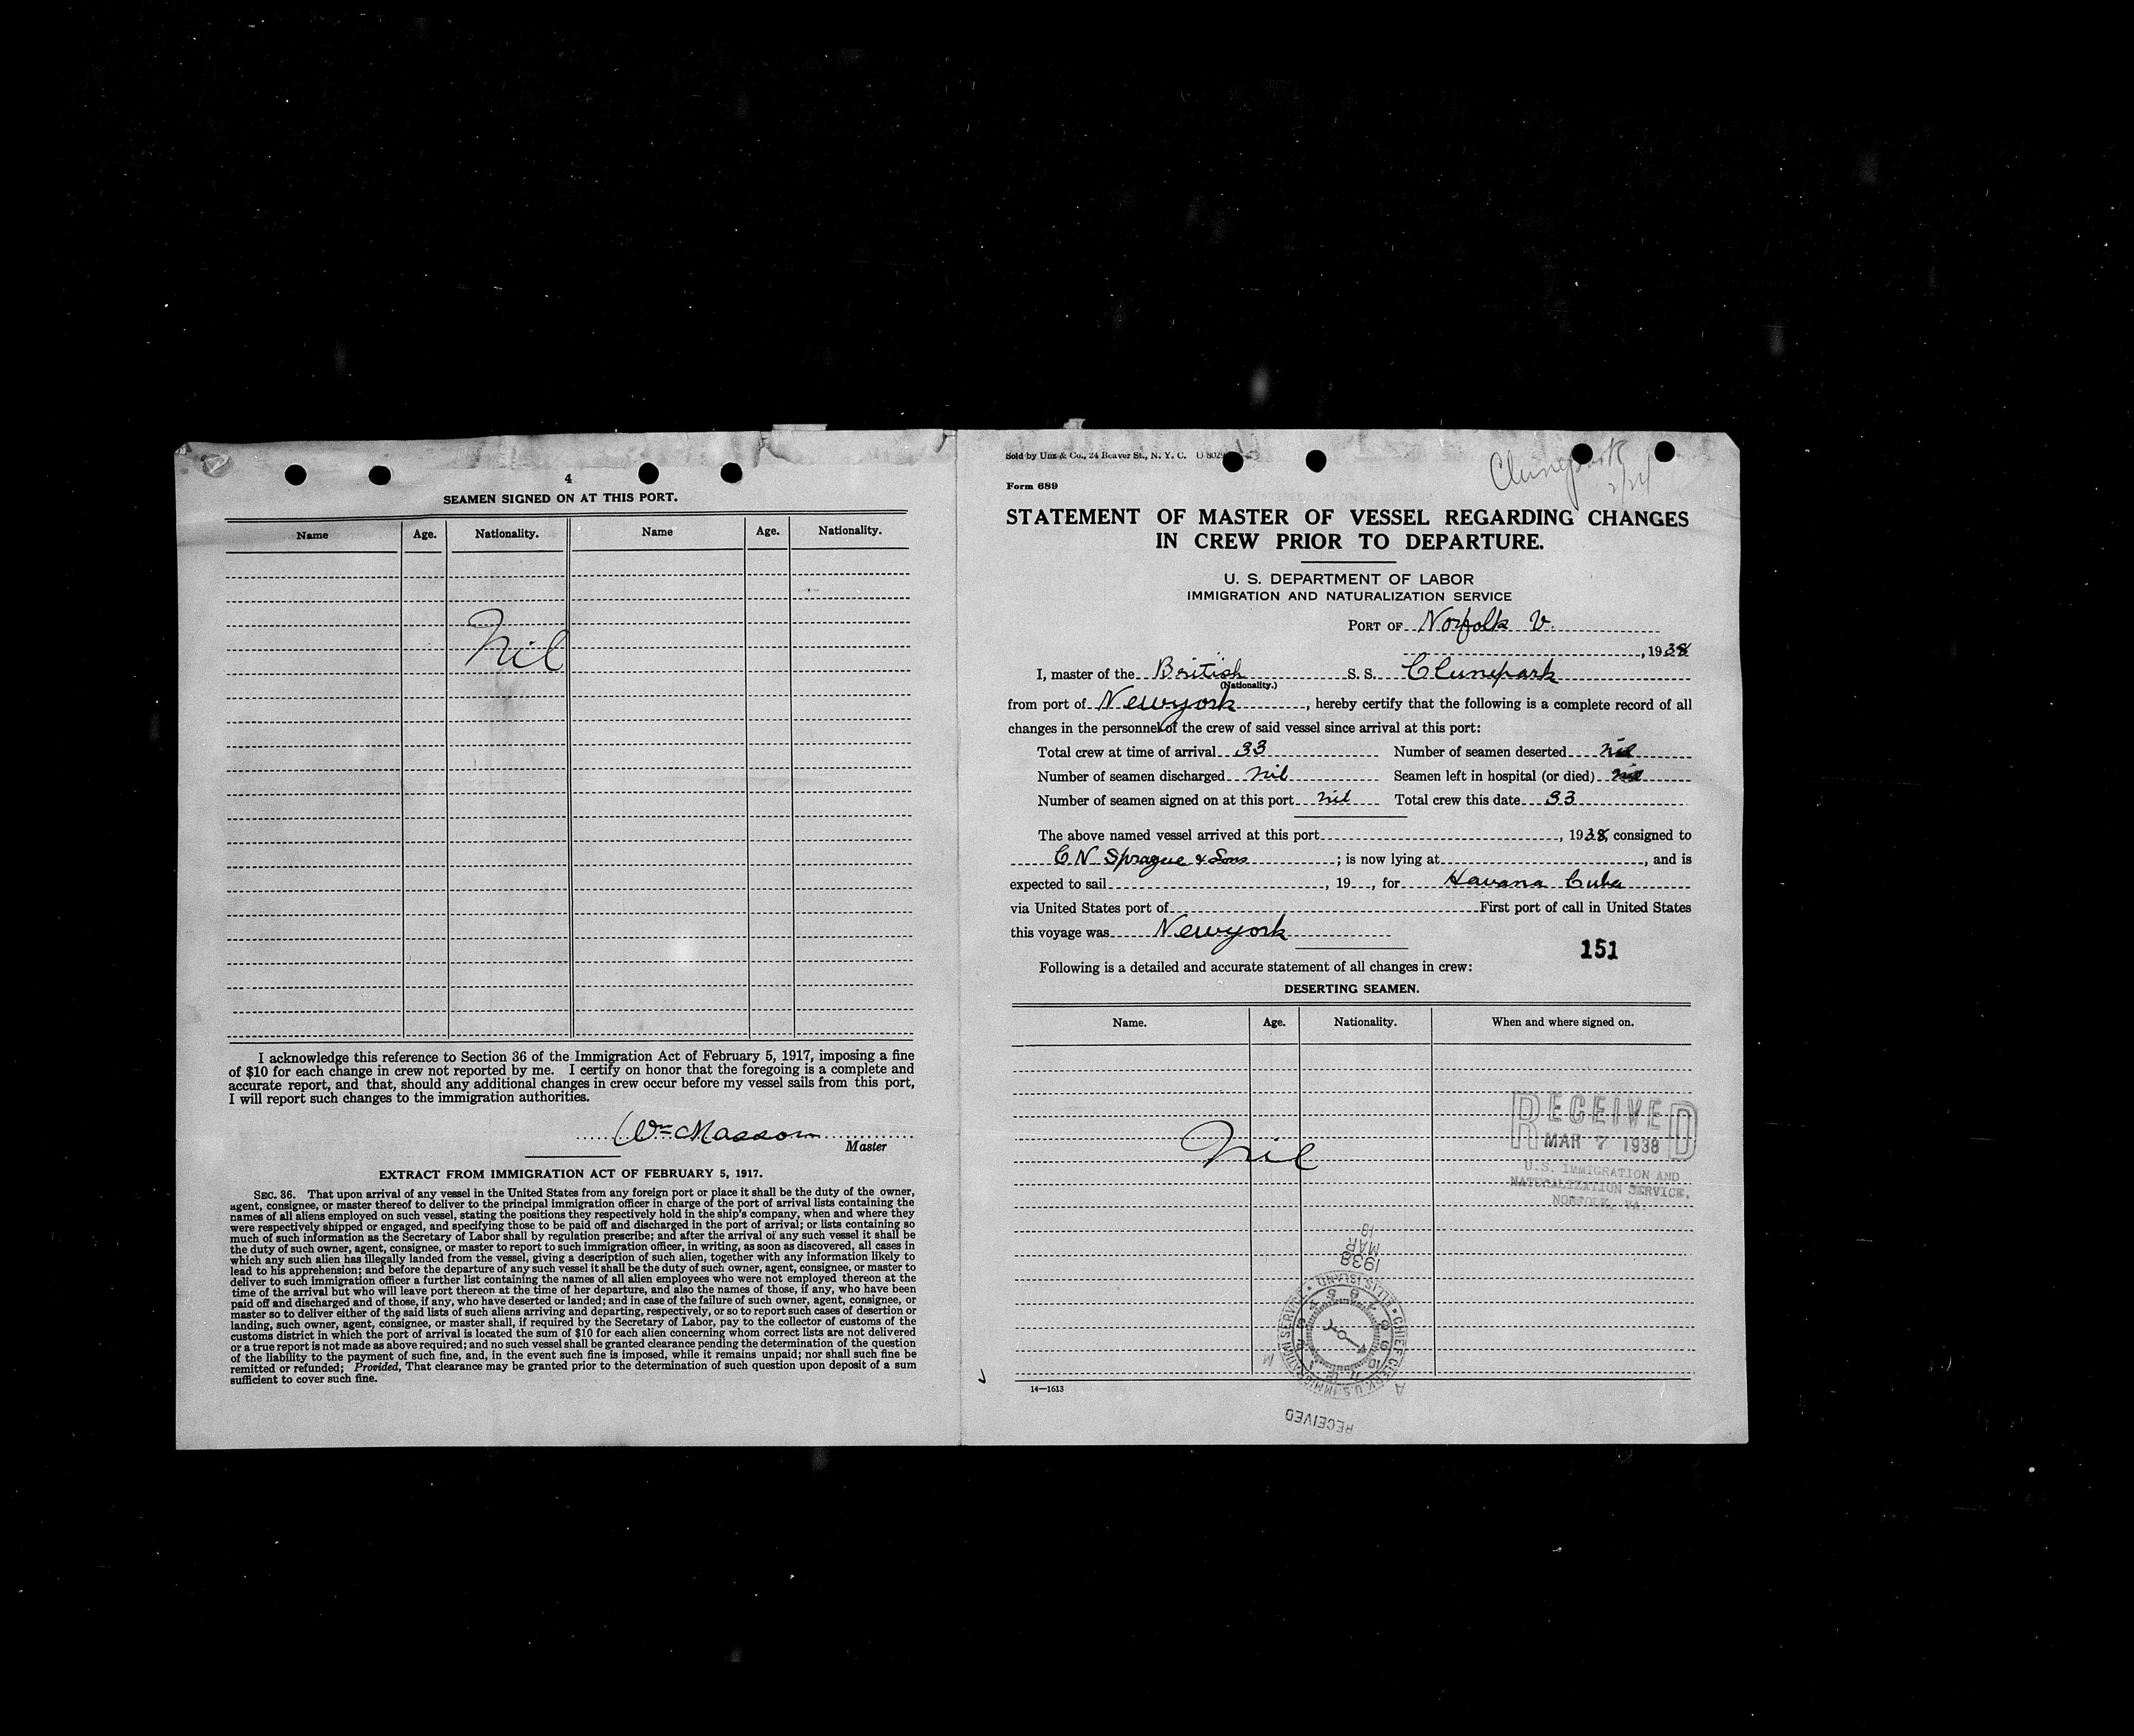 4
SEAMEN SIGNED ON AT THIS PORT.
Name Age. Nationality. Name Age. Nationality.
Nil
I acknowledge this reference to Section 36 of the Immigration Act of February 5, 1917, imposing a fine
of $10 for each change in crew not reported by me. I certify on honor that the foregoing is a complete and
accurate report, and that, should any additional changes in crew occur before my vessel sails from this port,
I will report such changes to the immigration authorities.
Wm Masson
Master
EXTRACT FROM IMMIGRATION ACT OF FEBRUARY 5, 1917.
SEC. 36. That upon arrival of any vessel in the United States from any foreign port or place it shall be the duty of the owner,
agent, consignee, or master thereof to deliver to the principal immigration officer in charge of the port of arrival lists containing the
names of all aliens employed on such vessel, stating the positions they respectively hold in the ship's company, when and where they
were respectively shipped or engaged, and specifying those to be paid off and discharged in the port of arrival; or lists containing so
much of such information as the Secretary of Labor shall by regulation prescribe; and after the arrival of any such vessel it shall be
the duty of such owner, agent, consignee, or master to report to such immigration officer, in writing, as soon as discovered, all cases in
which any such alien has illegally landed from the vessel, giving a description of such alien, together with any information likely to
lead to his apprehension; and before the departure of any such vessel it shall be the duty of such owner, agent, consignee, or master to
deliver to such immigration officer a further list containing the names of all alien employees who were not employed thereon at the
time of the arrival but who will leave port thereon at the time of her departure, and also the names of those, if any, who have been
paid off and discharged and of those, if any, who have deserted or landed; and in case of the failure of such owner, agent, consignee, or
master so to deliver either of the said lists of such aliens arriving and departing, respectively, or so to report such cases of desertion or
landing, such owner, agent, consignee, or master shall, if required by the Secretary of Labor, pay to the collector of customs of the
customs district in which the port of arrival is located the sum of $10 for each alien concerning whom correct lists are not delivered
or a true report is not made as above required; and no such vessel shall be granted clearance pending the determination of the question
of the liability to the payment of such fine, and, in the event such fine is imposed, while it remains unpaid; nor shall such fine be
remitted or refunded; Provided, That clearance may be granted prior to the determination of such question upon deposit of a sum
sufficient to cover such fine.
Sold by Unz & Co., 24 Beaver St., N. Y. C.
Clunepark
Form 689
STATEMENT OF MASTER OF VESSEL REGARDING CHANGES
IN CREW PRIOR TO DEPARTURE.
U. S. DEPARTMENT OF LABOR
IMMIGRATION AND NATURALIZATION SERVICE
PORT OF Norfolk V.
, 1938
I, master of the British S. S. Clunepark
(Nationality.)
from port of Newyork, hereby certify that the following is a complete record of all
changes in the personnel of the crew of said vessel since arrival at this port:
Total crew at time of arrival 33 Number of seamen deserted nil
Number of seamen discharged nil Seamen left in hospital (or died) nil
Number of seamen signed on at this port nil Total crew this date 33
The above named vessel arrived at this port , 1938, consigned to
C. N. Sprague & Sons ; is now lying at , and is
expected to sail , 19 , for Havana Cuba
via United States port of First port of call in United States
this voyage was Newyork
151
Following is a detailed and accurate statement of all changes in crew:
DESERTING SEAMEN.
Name. Age. Nationality. When and where signed on.
Nil
RECEIVED
MAR 7 1938
U.S. IMMIGRATION AND
NATURALIZATION SERVICE,
NORFOLK, VA.
RECEIVED
CHIEF CLERK U.S. IMMIGRATION SERVICE ELLIS ISLAND
1938
MAR
14—1613